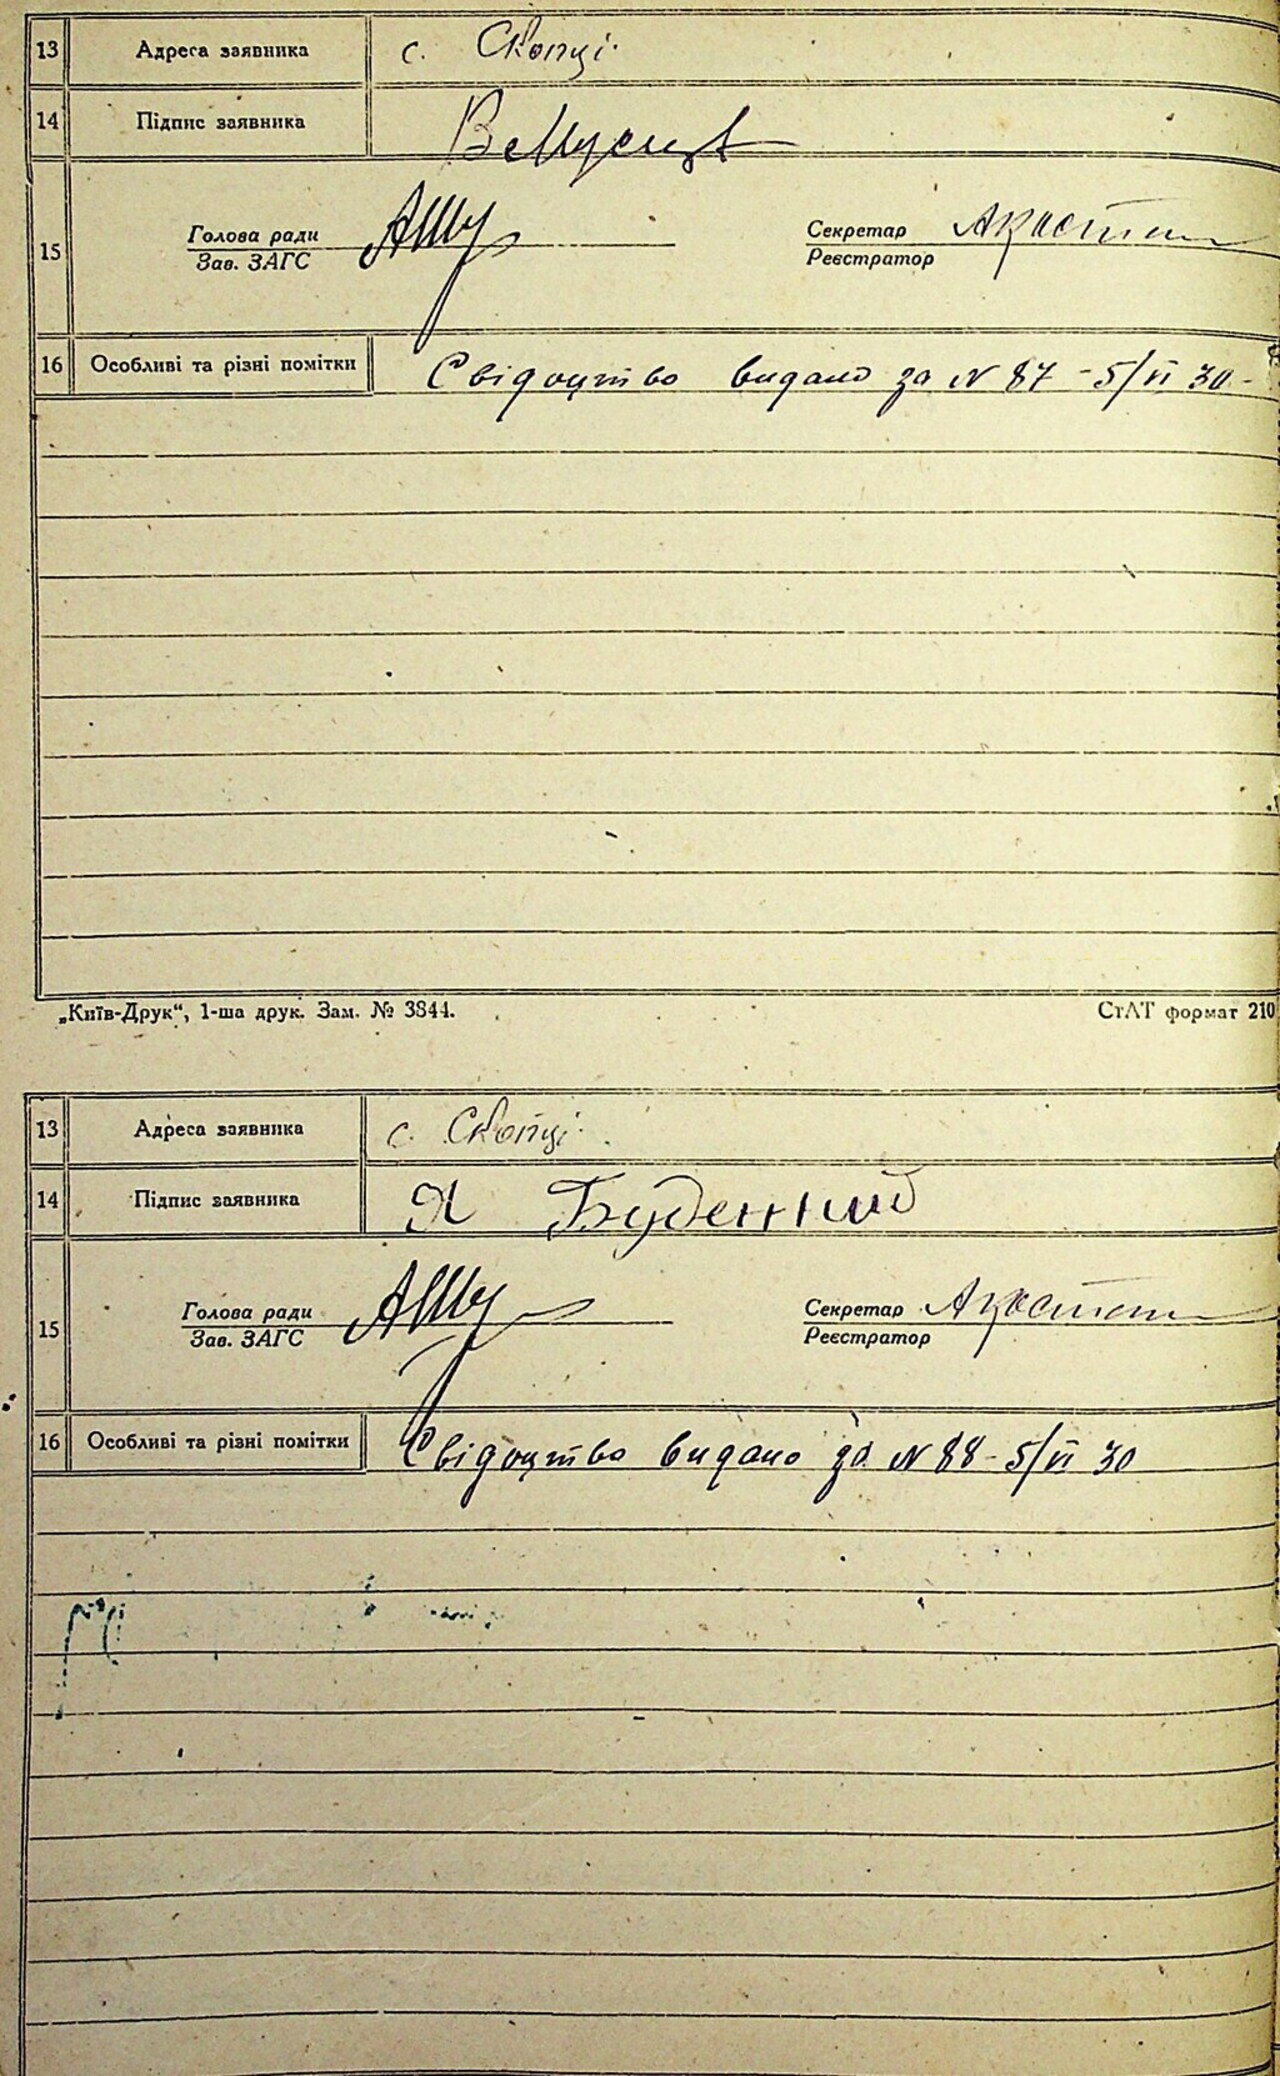 13 Адреса заявника с. Скопці.
14 Підпис заявника
15 Голова ради Секретар
Зав. ЗАГС Реєстратор
16 Особливі та різні помітки Свідоцтво видано за N 87 - 5/VI 30 -
„Київ-Друк“, 1-ша друк. Зам. № 3844. СтАТ формат 210
13 Адреса заявника с. Скопці.
14 Підпис заявника Я Буденний
15 Голова ради Секретар
Зав. ЗАГС Реєстратор
16 Особливі та різні помітки Свідоцтво видано за N 88 - 5/VI 30